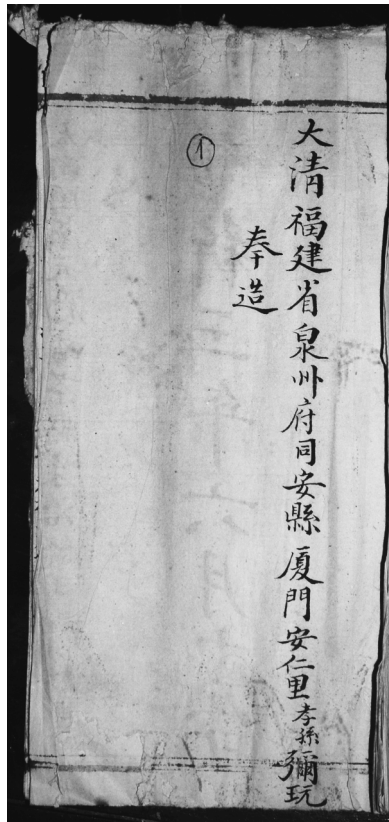 大清福建省泉州府同安縣厦門安仁里孝孫彌玩
奉造
1